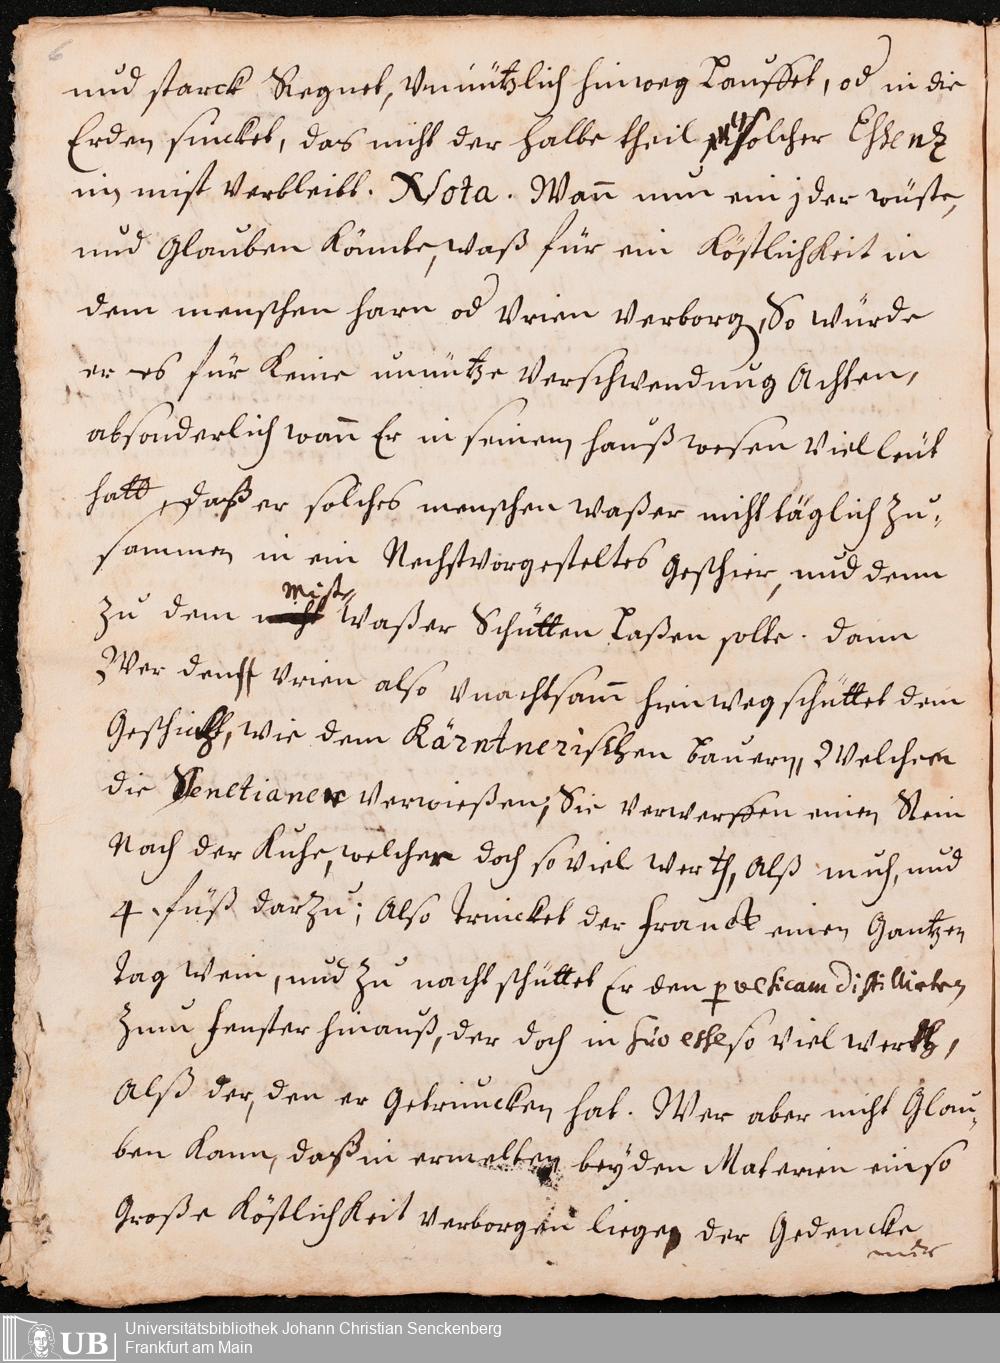 6
und starck Regnet, Vnnützlich hinweg Lauffet, od in die
Erden sincket, das nicht der halbe theil solcher Essentz
im mist Verbleibt. Nota. Wann nun ein jder wüste,
und Glauben Könnte, waß für ein Köstlichkeit in
dem menschen harn od Vrien Verborg, So würde
er es für Keine unnütze Verschwendung Achten,
absonderlich wann Er in seinem hauß wesen Viel leüt
hatt, daß er solches menschen waßer nicht täglich zu-
sammen in ein Nechstvorgesteltes Geschier, und denn
zu dem Mist waßer Schütten Laßen solte. dann
Wer den Vrien also Vnachtsam hinweg schüttet dem
Geschicht, wie dem Kärntnerischen bauern, Welchem
die Venetianer Verwießen; Sie Verwerffen einen Stein
Nach der Kuhe, welcher doch so viel werth, Alß die Kuh, und
4 füß darzu; Also Trincket der Franck einen Gantzen
Tag wein, und zu nacht schüttet Er den p vesicam distillirten
zum Fenster hinauß, der doch in suo esse so viel werth,
Alß der, den er Getruncken hat. Wer aber nicht Glau-
ben Kann, daß in ermelten beÿden Materien ein so
Große Köstlichkeit Verborgen liege, der Gedencke
nur
UB
Universitätsbibliothek Johann Christian Senckenberg
Frankfurt am Main